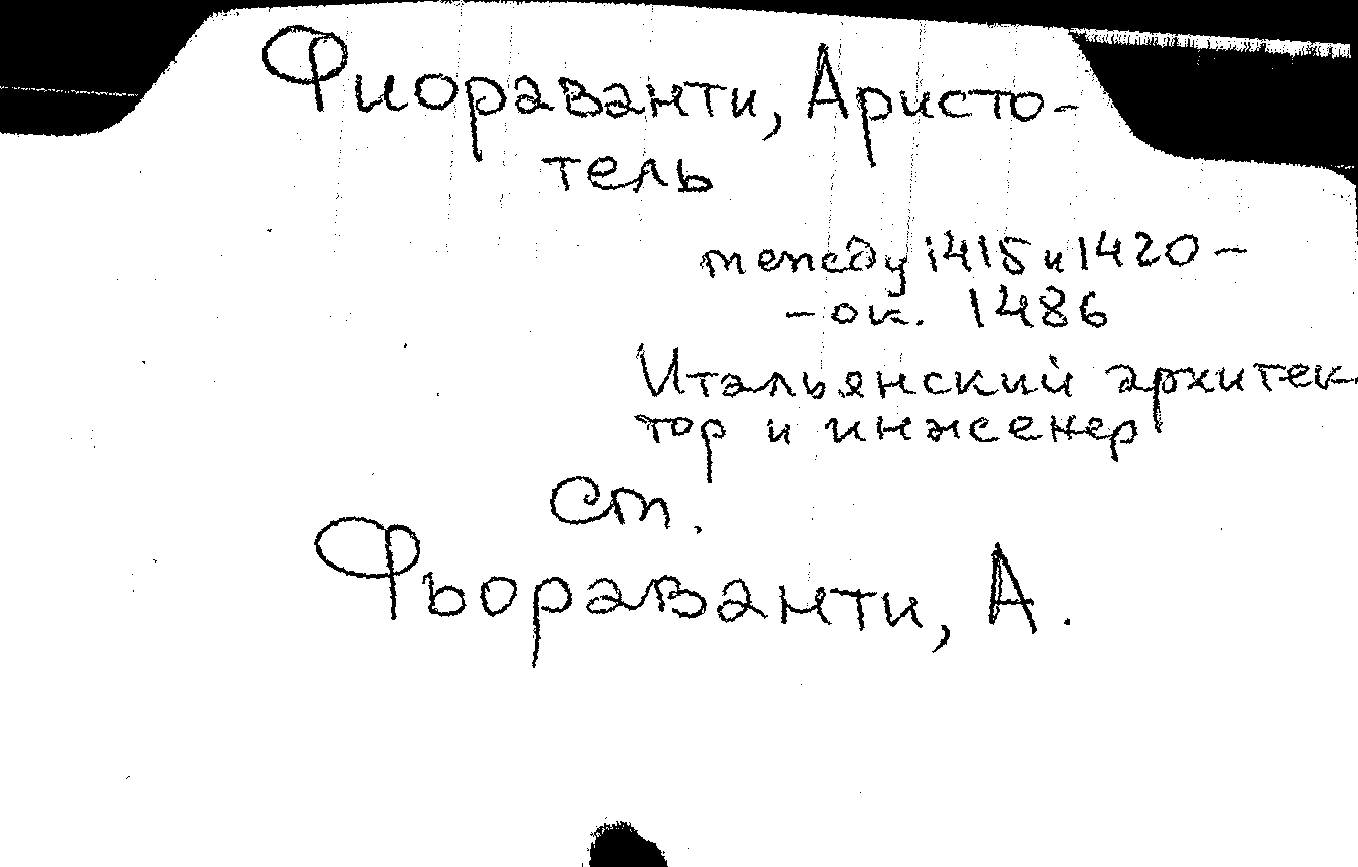 Фиораванти, Аристо-
тель
между 1415 и 1420 -
- ок. 1486
Итальянский архитек-
тор и инженер
См.
Фьораванти, А.